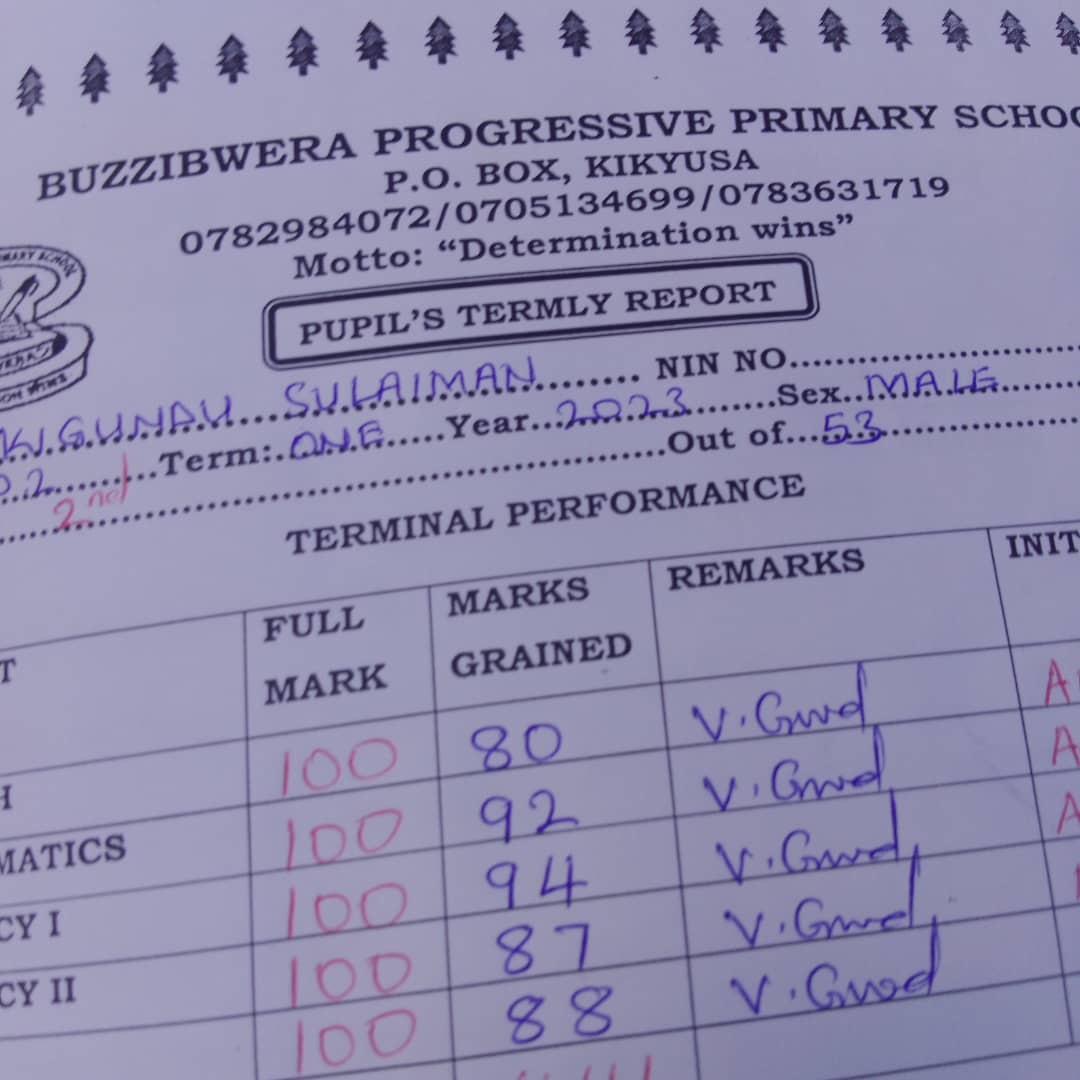 BUZZIBWERA PROGRESSIVE PRIMARY SCHOO
P.O. BOX, KIKYUSA
0782984072/0705134699/0783631719
Motto: “Determination wins”
PUPIL’S TERMLY REPORT
SULAIMAN NIN NO
P.2 Term: ONE Year 2023 Sex MALE
2nd Out of 53
TERMINAL PERFORMANCE
T FULL MARK MARKS GRAINED REMARKS INIT
H 100 80 V. Good A
MATICS 100 92 V. Good A
CY I 100 94 V. Good A
CY II 100 87 V. Good
100 88 V. Good